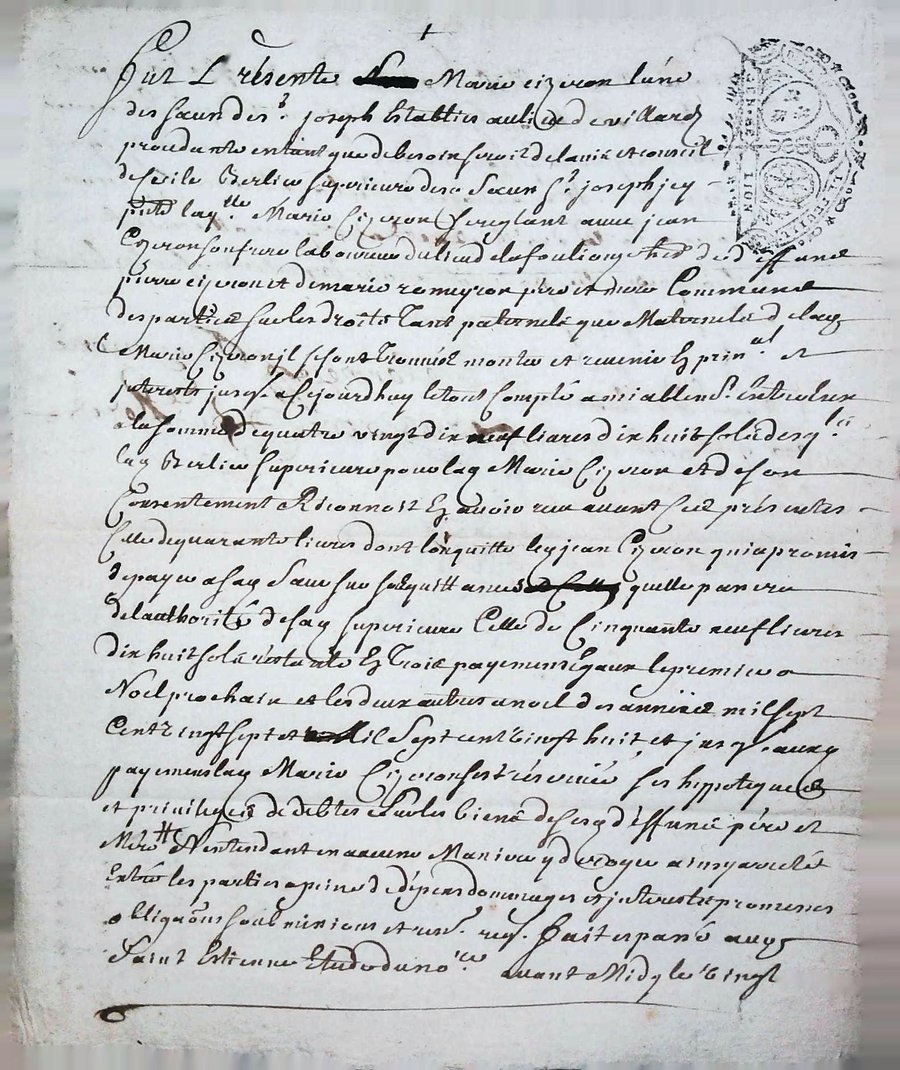 Fut Présente Marie Cizeron l'une
des sœurs de St. Joseph Establies au lieu de villard
procedante entant que de besoin seroit de lavis et conseil
de Berlier superieure desd. Sœurs St. joseph jcy
laqlle Marie Cizeron Creglant avec jean
Cizeron son frere laboureur du lieu de la fouliouze de deffuncts
pierre cizeron et de marie romeyron père et mere Commune
des parties sur les droits Tant paternels que Maternels de lad.
Marie Cizeron jl se sont Trouvéz monter et revenir En prinal et
jnterests jusq. a Cejourdhuy le tout Compté amiablemt. Entre Eux
a la somme de quatre vingt dix neuf livres dix huit sols desqls
lad Berlier superieure pour lad Marie Cizeron et de son
Consentement Réconnoit En avoir reçu avant Ces présentes
Celle de quarante livres dont Elle quitte led jean Cizeron qui a promis
de payer a sad Sœur sur ses quittances quelle passera
de l'authorité de sad superieure Celle de Cinquante neuf livres
dix huit sols restante En Trois payemens Egaux le premier a
Noel prochain et les deux autres a noel des années mil sept
Cent vingt sept et mil Sept cent vingt huit et jusq. auxd
payemens lad Marie Cizeron sest réservée ses hypoteques
et privileges de debtes sur les biens de sesd déffuncts père et
Mére N'entendant en aucune Maniere y deroger ainsy arresté
Entre les parties a peine de dépens dommages et jnterests promesses
obligaons soubmissions et ren. req. Fait et passé aud
Saint Estienne Etude du nore avant Midy le vingt